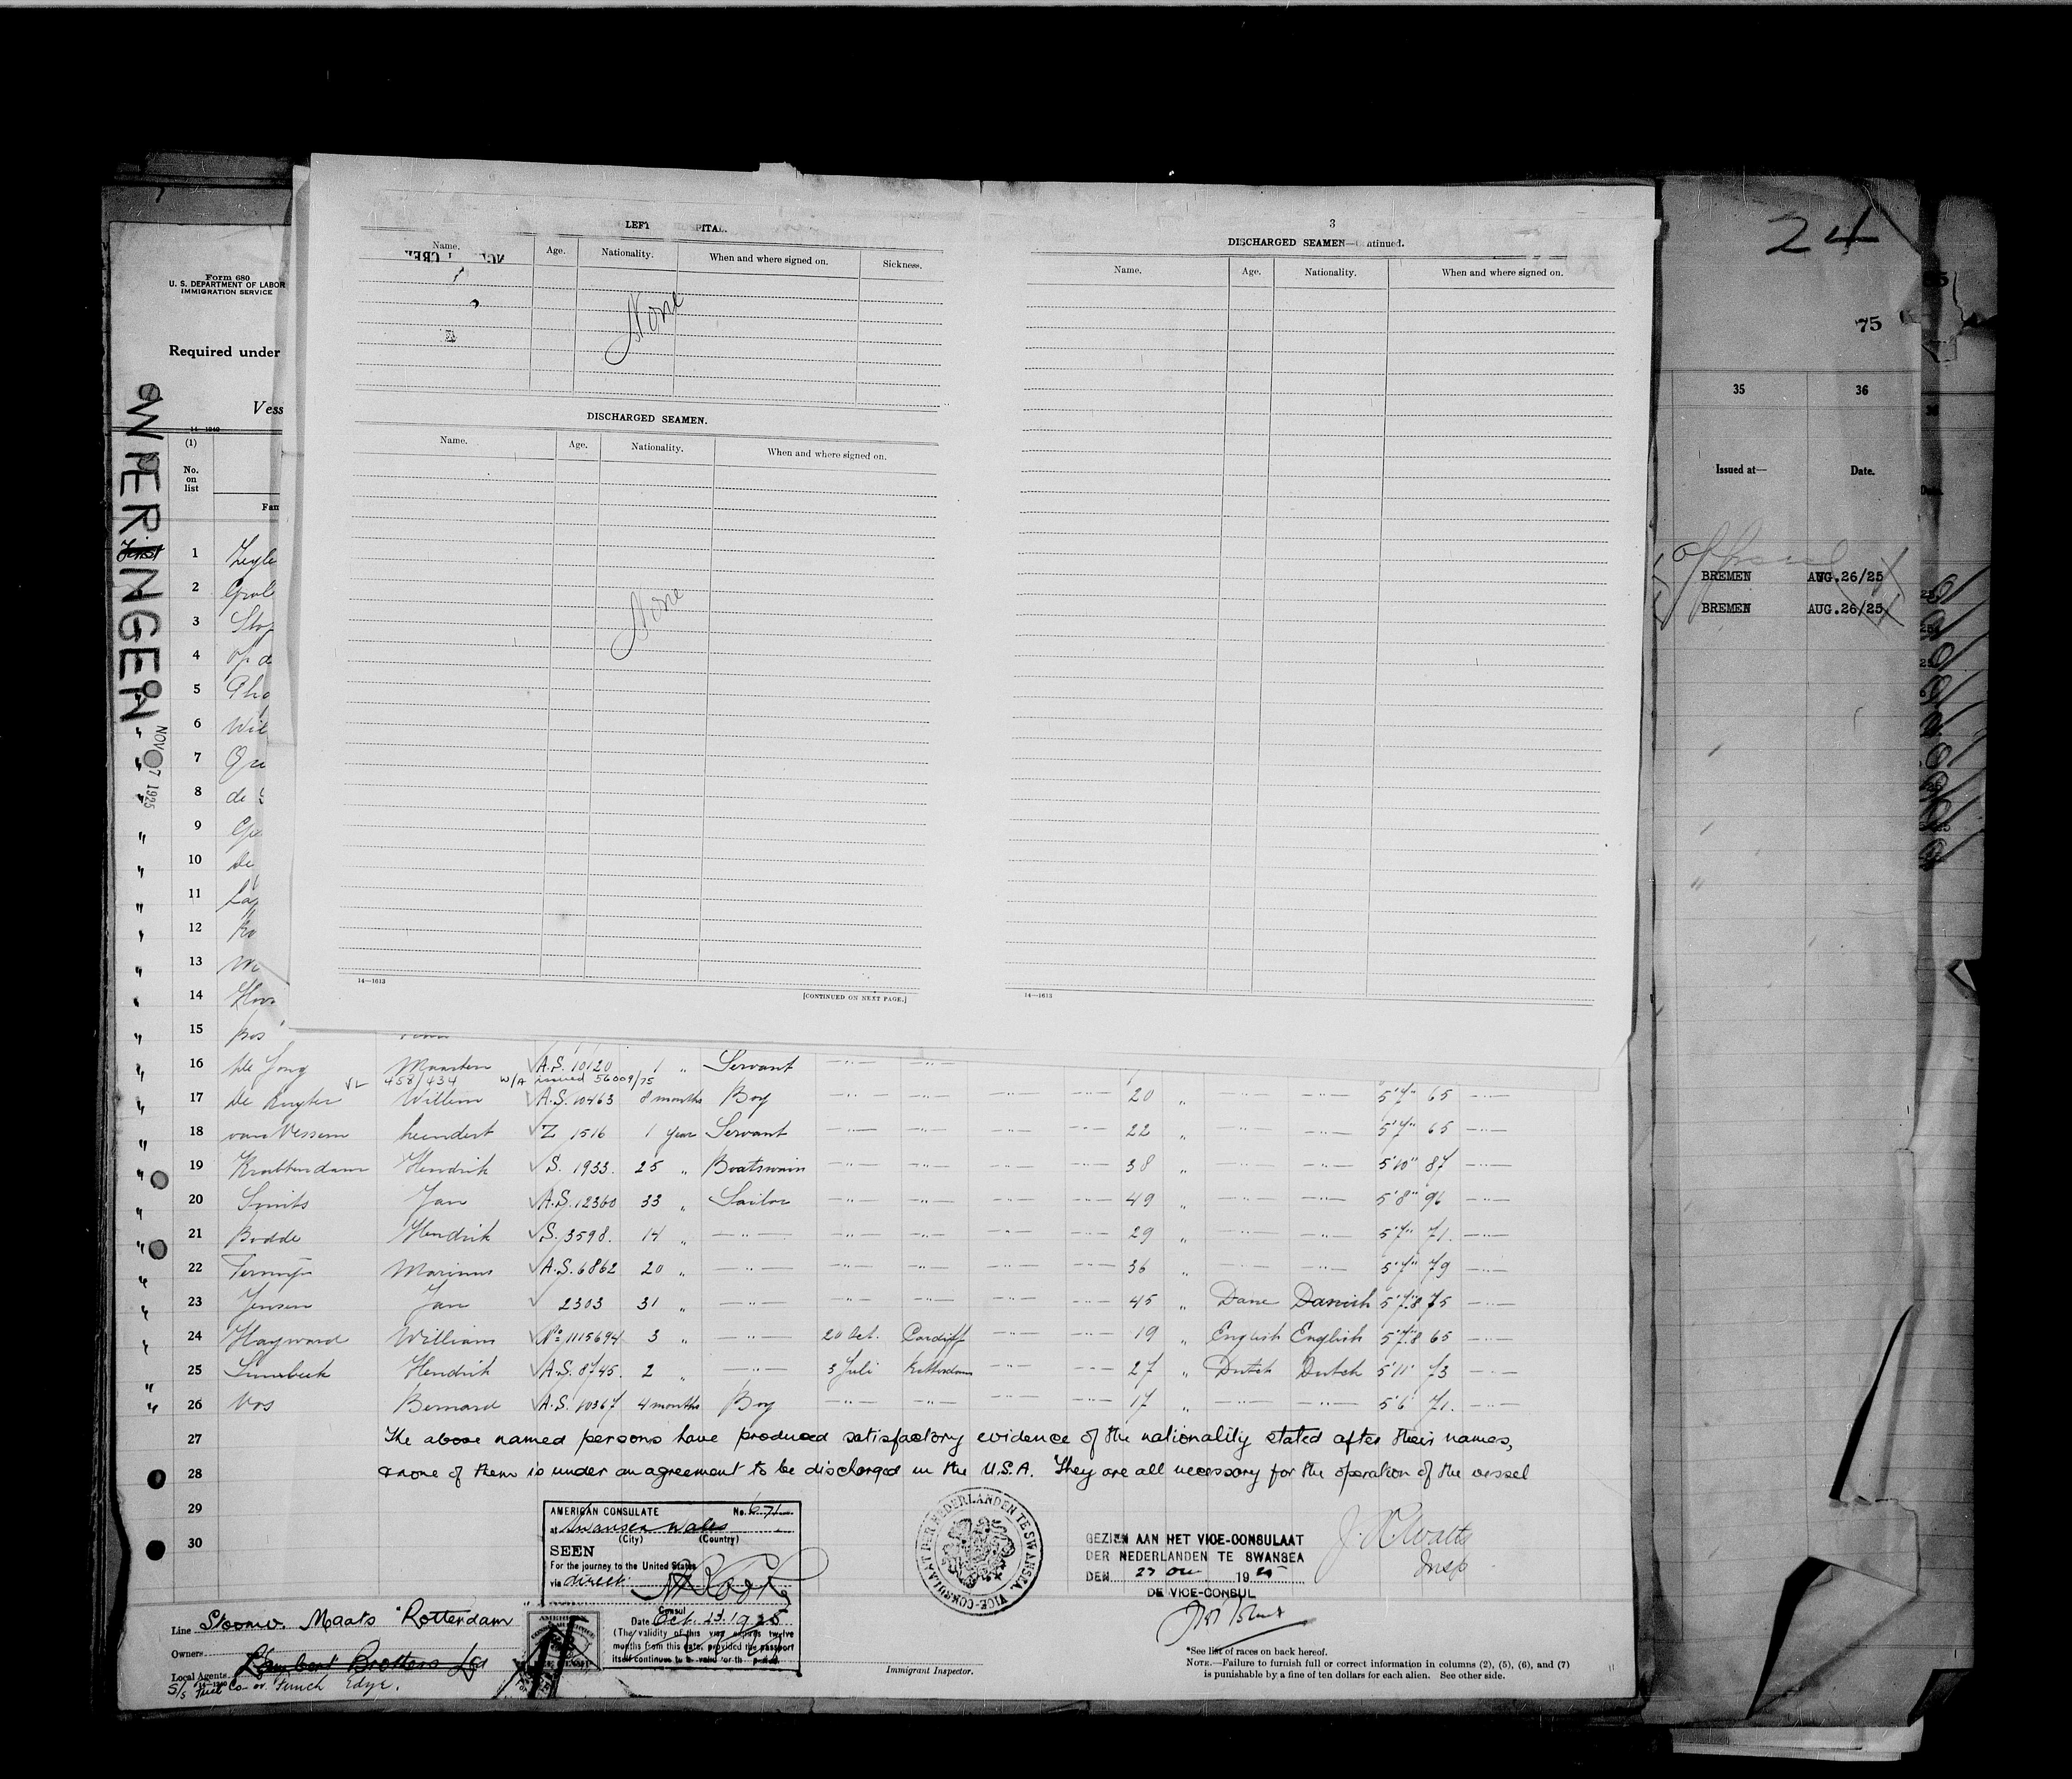 LEFT HOSPITAL.
Name. Age. Nationality. When and where signed on. Sickness.
None
DISCHARGED SEAMEN.
Name. Age. Nationality. When and where signed on.
None
14—1613
[CONTINUED ON NEXT PAGE.]
3
DISCHARGED SEAMEN—Continued.
Name. Age. Nationality. When and where signed on.
14—1613
24
75
35 36
Issued at— Date.
BREMEN AUG.26/25
BREMEN AUG.26/25
Form 680
U. S. DEPARTMENT OF LABOR
IMMIGRATION SERVICE
Required under
Vess
14—1240
(1)
No.
on
list
Fam
WIERINGEN
NOV 7 1925
First
1 Zegle
2
3
4 op d
5
6 Wil
7
8 de
9
10 de
11
12 Ko
13
14
15 Bos
16 de Jong Maarten A.S. 10120 1 " Servant
458/434 W/A issued 56009/75
17 de Ruyter Willem A.S. 10463 8 months Boy —"— —"— —"— —"— 20 " —"— —"— 5'7" 65 —"—
18 van Vessem Leendert Z 1516 1 year Servant —"— —"— —"— —"— 22 " —"— —"— 5'7" 65 —"—
19 Krabbendam Hendrik S. 1933. 25 " Boatswain —"— —"— —"— —"— 38 " —"— —"— 5'10" 87 —"—
20 Smits Jan A.S. 12360 33 " Sailor —"— —"— —"— —"— 49 " —"— —"— 5'8" 96 —"—
21 Bodde Hendrik S. 3598. 14 " —"— —"— —"— —"— —"— 29 " —"— —"— 5'7" 71. —"—
22 Marinus A.S. 6862 20 " —"— —"— —"— —"— —"— 36 " —"— —"— 5'7" 79 —"—
23 Jensen Jan 2303 31 " —"— —"— —"— —"— —"— 45 " Dane Danish 5'7"8 75 —"—
24 Hayward William No 1115694 3 " —"— 20 Oct. Cardiff —"— —"— 19 " English English 5'7"8 65 —"—
25 Hendrik A.S. 8745. 2 " —"— 3 Juli Rotterdam —"— —"— 27 " Dutch Dutch 5'11" 73 —"—
26 Vos Bernard A.S. 10367 4 months Boy —"— —"— —"— —"— 17 " —"— —"— 5'6 71. —"—
27 The above named persons have produced satisfactory evidence of the nationality stated after their names,
28 & none of them is under an agreement to be discharged in the U.S.A. They are all necessary for the operation of the vessel
29
30
AMERICAN CONSULATE No. 671
at Swansea Wales
(City) (Country)
SEEN
For the journey to the United States
via direct
Consul
Date Oct. 23. 1925
(The validity of this visa expires twelve
months from this date, provided the passport
itself continues to be valid for that period.
VICE-CONSULAAT DER NEDERLANDEN TE SWANSEA
GEZIEN AAN HET VICE-CONSULAAT
DER NEDERLANDEN TE SWANSEA
DEN 1925
DE VICE-CONSUL
J. R. Watts
Insp
Line Stoomv. Maats "Rotterdam
Owners
Local Agents Lambert Brothers Ld
Funch Edye.
Immigrant Inspector.
*See list of races on back hereof.
NOTE.—Failure to furnish full or correct information in columns (2), (5), (6), and (7)
is punishable by a fine of ten dollars for each alien. See other side.